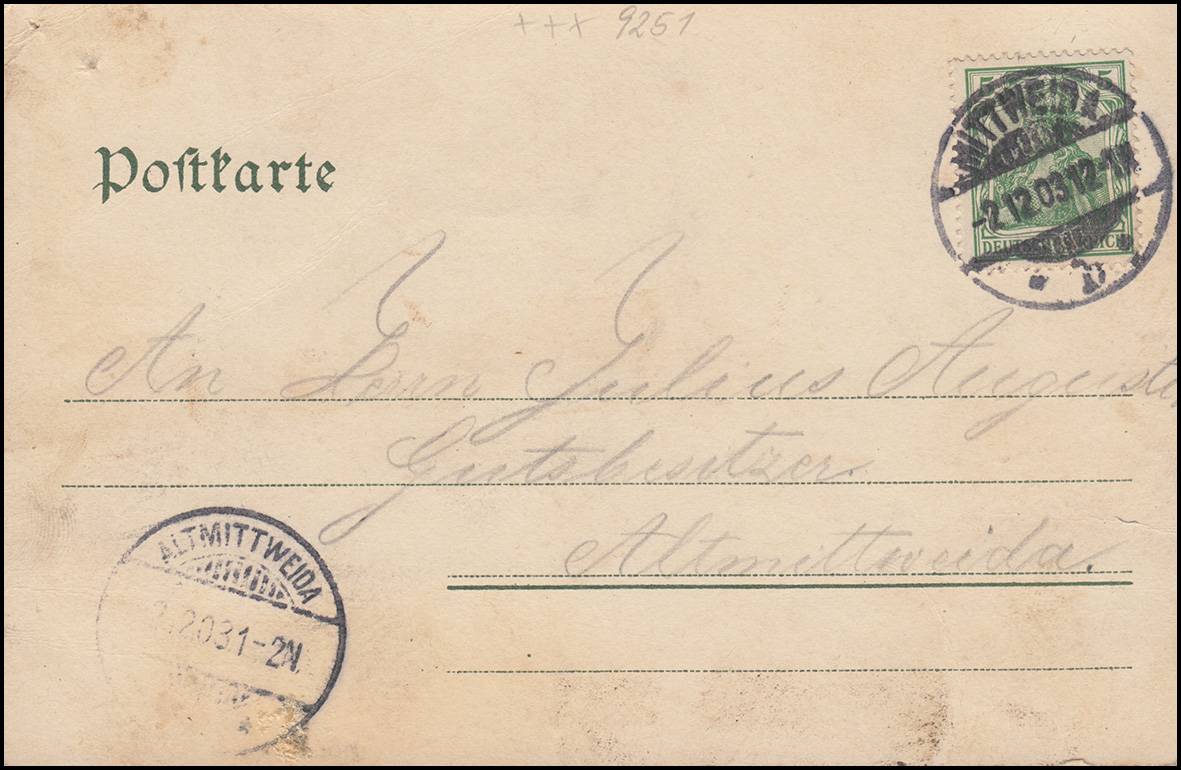 +++ 9251
5 5
MITTWEIDA
-2 12 03 12-1N
DEUTSCHES REICH
* b
Postkarte
An Herrn Julius Auguste
Gutsbesitzer
Altmittweida.
ALTMITTWEIDA
2.12 03 1-2N
*